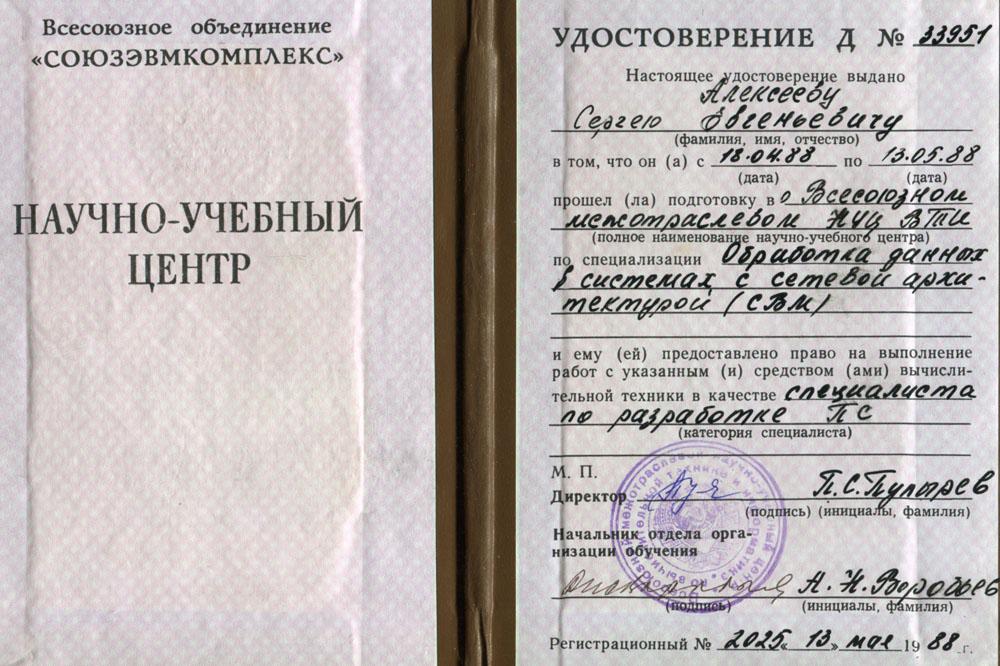 Всесоюзное объединение
«СОЮЗЭВМКОМПЛЕКС»
НАУЧНО-УЧЕБНЫЙ
ЦЕНТР
УДОСТОВЕРЕНИЕ Д № 33951
Настоящее удостоверение выдано
Алексееву
Сергею Евгеньевичу
(фамилия, имя, отчество)
в том, что он (а) с 18.04.88 по 13.05.88
(дата) (дата)
прошел (ла) подготовку в о Всесоюзном
межотраслевом НУЦ ВТИ
(полное наименование научно-учебного центра)
по специализации Обработка данных
в системах с сетевой архи-
тектурой (СВМ)
и ему (ей) предоставлено право на выполнение
работ с указанным (и) средством (ами) вычисли-
тельной техники в качестве специалиста
по разработке ПС
(категория специалиста)
М. П.
Директор П.С.Пупырев
(подпись) (инициалы, фамилия)
Начальник отдела орга-
низации обучения
А. Н. Воробьев
(подпись) (инициалы, фамилия)
Регистрационный № 2025 «13» мая 1988 г.